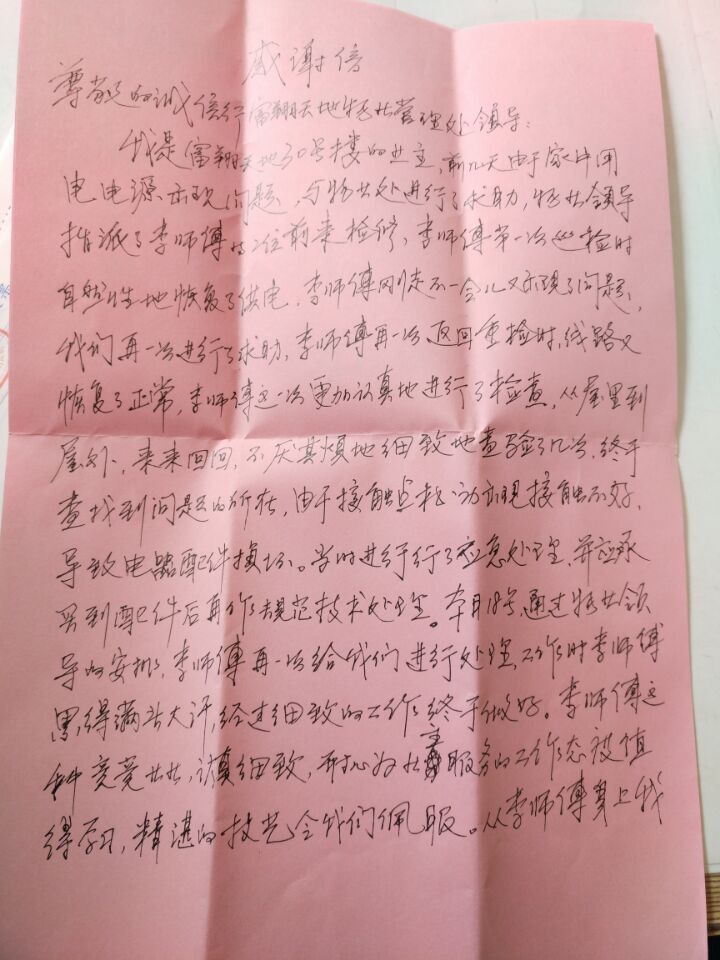 感谢信
尊敬的诚信行富翔天地物业管理处领导：
我是富翔天地30号楼的业主，前几天由于家中用
电电源出现问题，与物业处进行了求助，物业领导
指派了李师傅 位前来检修，李师傅第一次巡检时
自然性地恢复了供电，李师傅刚走不一会儿又出现了问题，
我们再一次进行了求助，李师傅再一次返回重检时，线路又
恢复了正常，李师傅这一次更加认真地进行了检查，从屋里到
屋外，来来回回，不厌其烦地细致地查验了几次，终于
查找到问题的所在，由于接触点松动出现接触不好，
导致电器配件损坏。当时进行行了应急处理，并应承
买到配件后再作规范技术处理。本月18号，通过物业领
导的安排，李师傅再一次给我们进行处理，工作时李师傅
累得满头大汗，经过细致的工作终于做好。李师傅这
种兢兢业业，认真细致，耐心为业主服务的工作态度值
得学习，精湛的技艺令我们佩服。从李师傅身上我